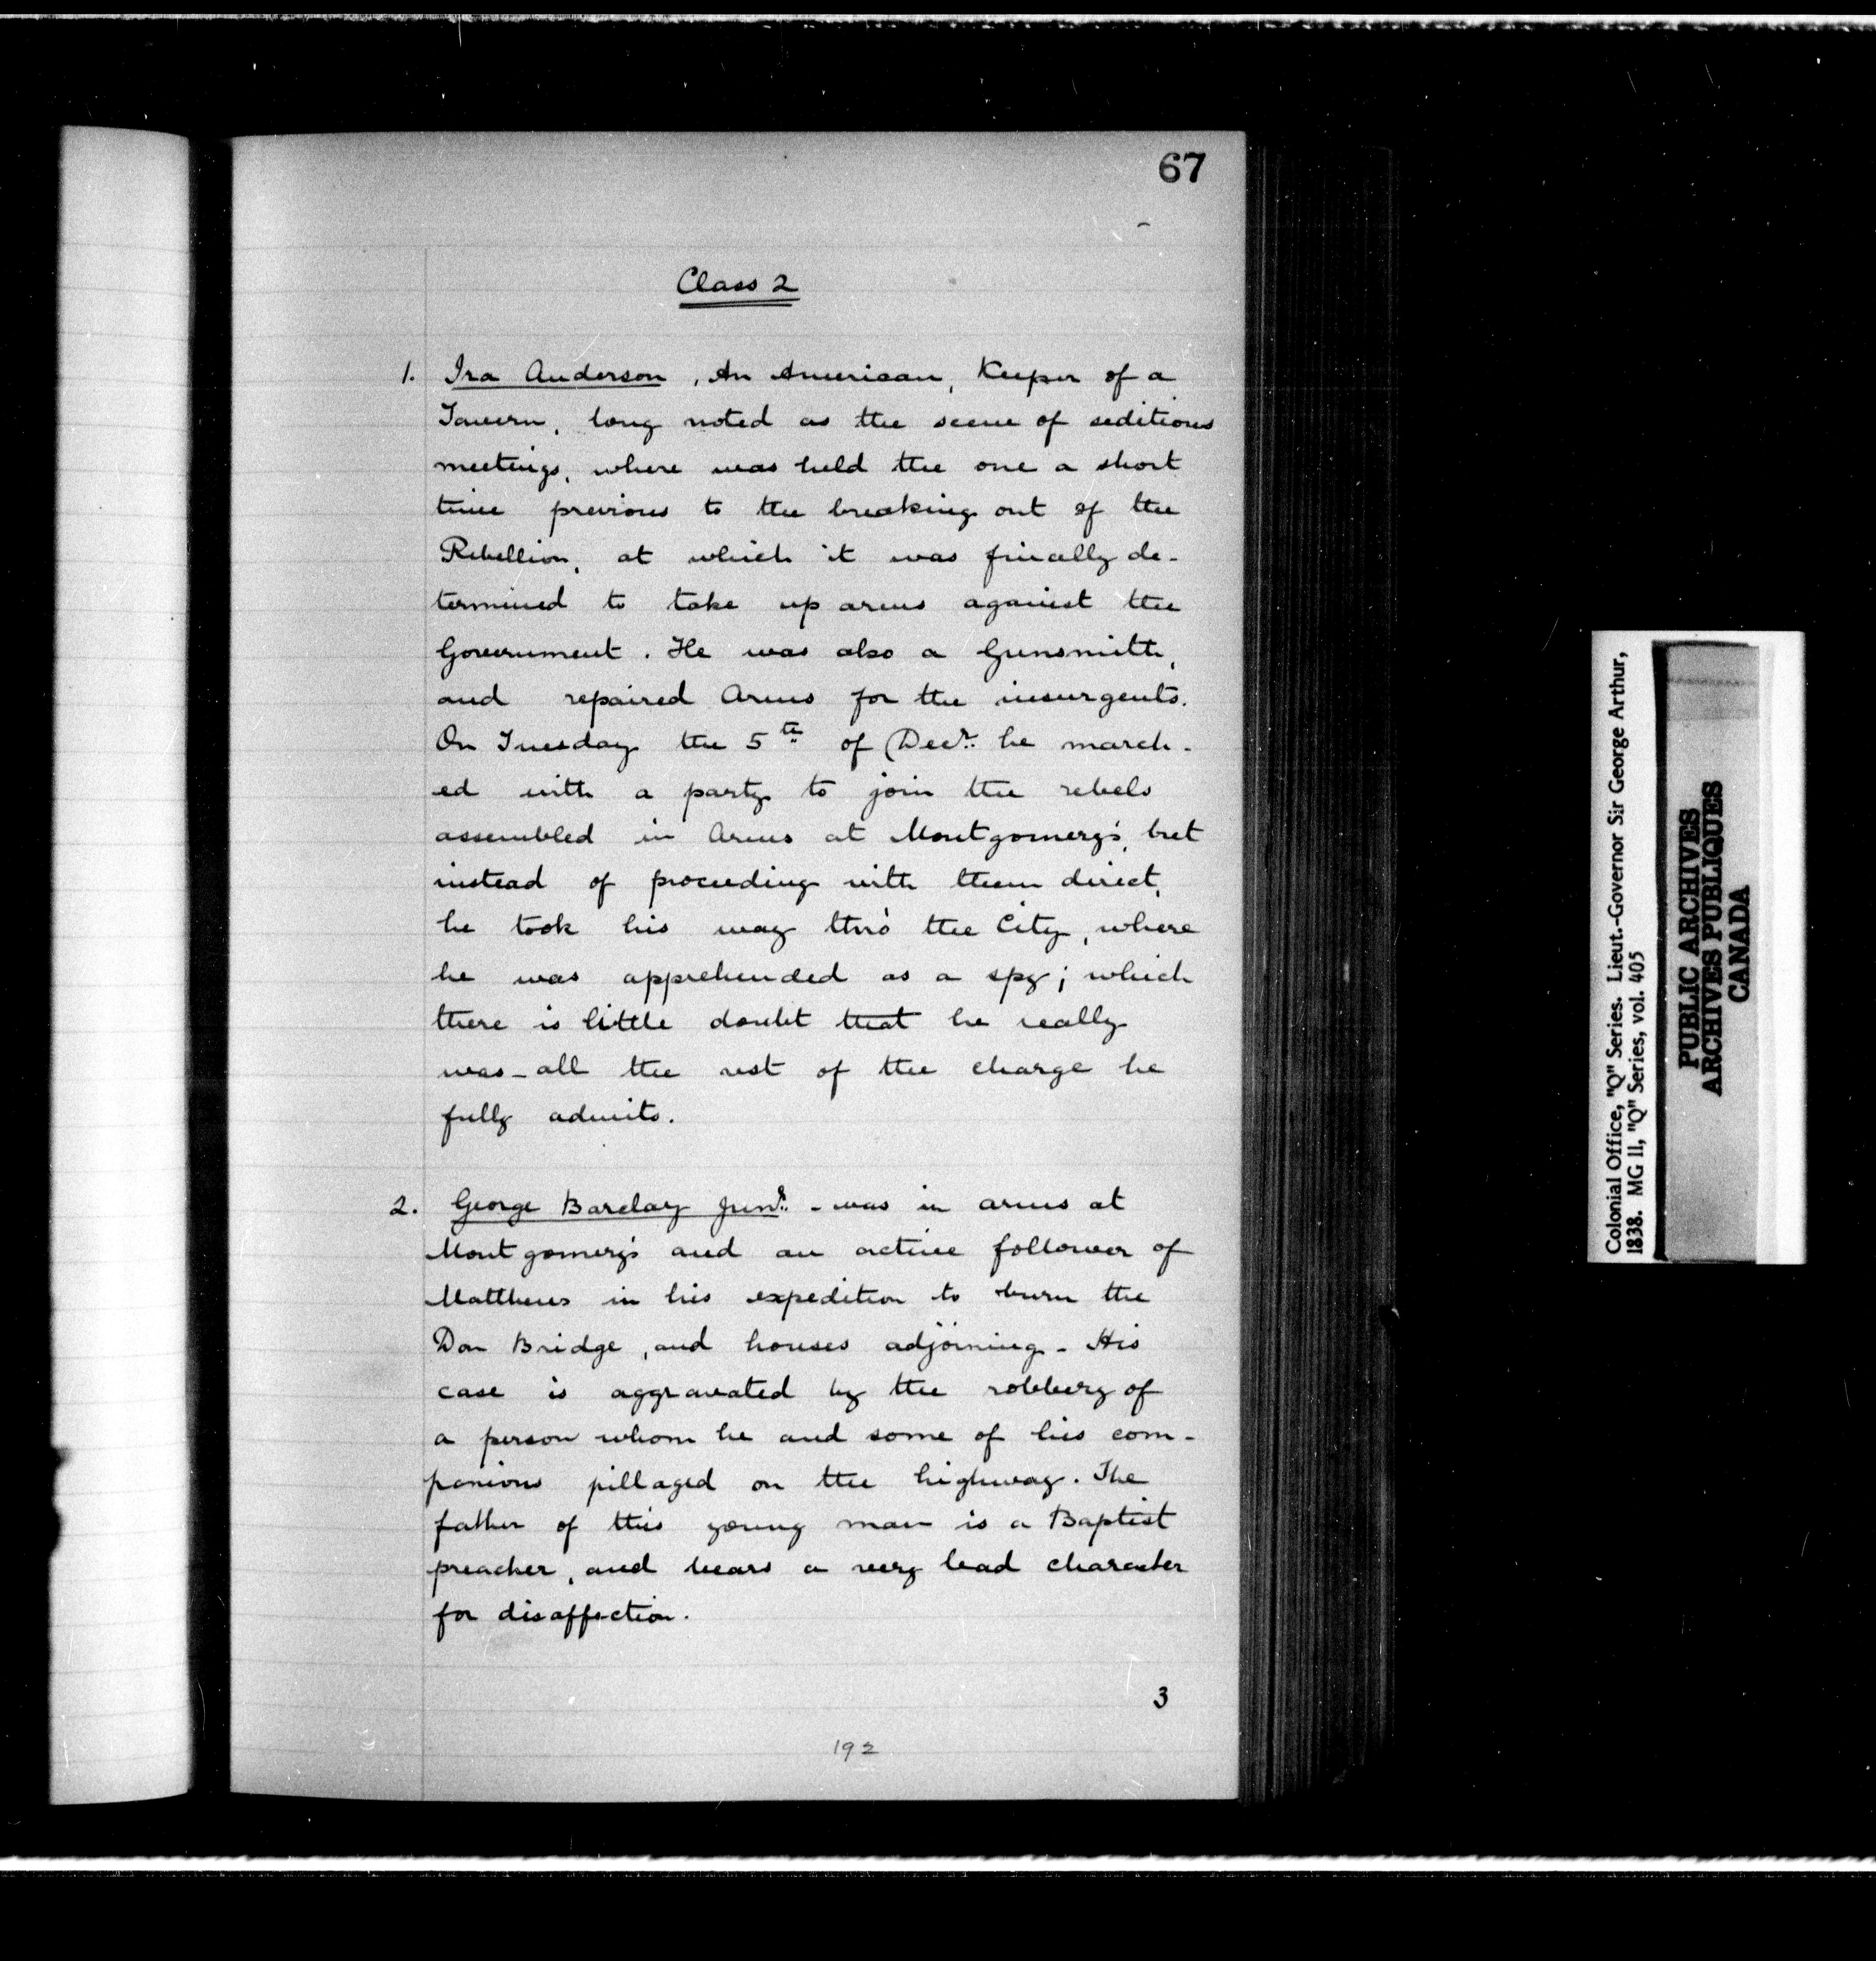 67
Class 2
1. Ira Anderson, An American, Keeper of a
Tavern, long noted as the scene of seditious
meetings, where was held the one a short
time previous to the breaking out of the
Rebellion, at which it was finally de-
termined to take up arms against the
Government. He was also a Gunsmith,
and repaired Arms for the insurgents.
On Tuesday the 5th of Decr. he march-
ed with a party to join the rebels
assembled in Arms at Montgomery's, but
instead of proceeding with them direct,
he took his way thro' the City, where
he was apprehended as a spy; which
there is little doubt that he really
was - all the rest of the charge he
fully admits.
2. George Barclay Junr. - was in arms at
Montgomery's and an active follower of
Matthews in his expedition to burn the
Don Bridge, and houses adjoining - His
case is aggravated by the robbery of
a person whom he and some of his com-
panions pillaged on the highway. The
father of this young man is a Baptist
preacher, and bears a very bad character
for disaffection.
3
192
Colonial Office, "Q" Series. Lieut.-Governor Sir George Arthur,
1838. MG 11, "Q" Series, vol. 405
PUBLIC ARCHIVES
ARCHIVES PUBLIQUES
CANADA